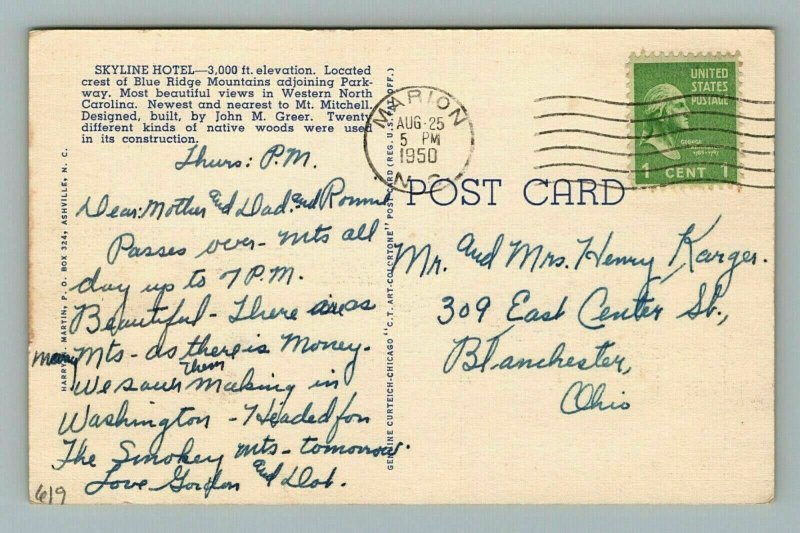 SKYLINE HOTEL—3,000 ft. elevation. Located
crest of Blue Ridge Mountains adjoining Park-
way. Most beautiful views in Western North
Carolina. Newest and nearest to Mt. Mitchell.
Designed, built, by John M. Greer. Twenty
different kinds of native woods were used
in its construction.
Thurs: P.M.
Dear: Mother and Dad. and Ronnie
Passes over - Mts all
day up to 7 P.M.
Beautiful - There are as
many Mts - as there is Money -
We saw Them Making in
Washington - Headed for
The Smokey Mts - tomorrow.
Love Gordon and Dot.
619
HARRY MARTIN, P. O. BOX 324, ASHVILLE, N. C.
GENUINE CURTEICH-CHICAGO "C.T. ART-COLORTONE" POST CARD (REG. U.S. PAT. OFF.)
MARION
AUG 25
5 PM
1950
N C
UNITED
STATES
POSTAGE
GEORGE
1 CENT 1
POST CARD
Mr. and Mrs. Henry Karger.
309 East Center St.,
Blanchester,
Ohio